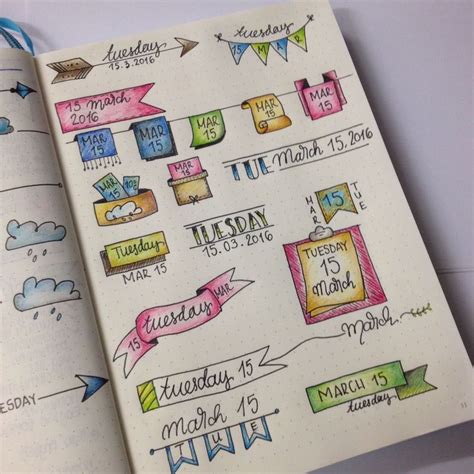 tuesday
15.3.2016
tuesday
15 MAR
15 march
2016
MAR
15
MAR
15
MAR
15
MAR
15
MAR
15
MAR
15
MAR
15
TUE March 15.2016
TUESDAY
15.03.2016
MAR
15
TUE
Tuesday
MAR 15
TUESDAY
15
march
15
tuesday
MAR
march
tuesday 15
march 15
TUE
MARCH 15
tuesday
ESDAY